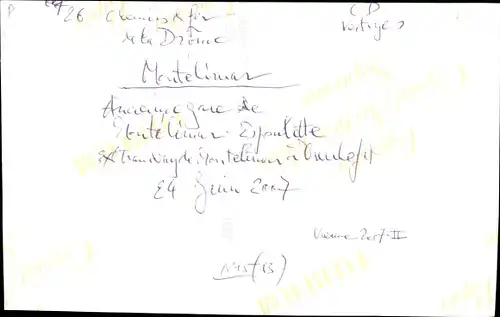 26 Chemins de fer
de la Drôme
CP
Montélimar
Ancienne gare de
Montélimar-Espoulette
ex Tramway de Montélimar à Dieulefit
24 Juin 2007
2007-II
N°15 (13)